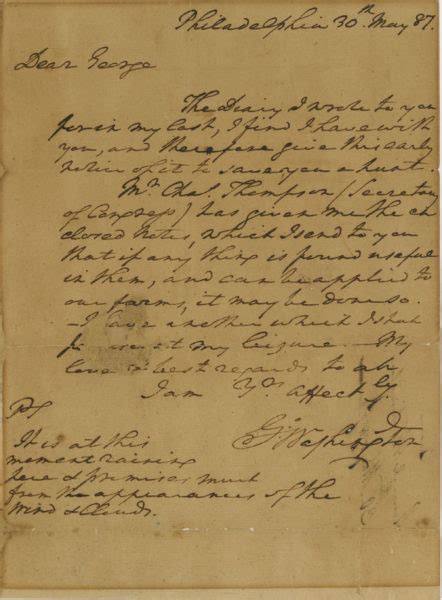 Philadelphia 30th May 87.
Dear George
The Diary I wrote to you
for in my last, I find I have with
you, and therefore give this early
notice of it to save you a hunt.
Mr. Chas. Thompson (Secretary
of Congress) has given me the en
closed Notes, which I send to you
that if any thing is found useful
in them, and can be applied to
our farms, it may be done so.
–I have another which I shall
at my leizure.–My
love & best regards to all
I am Yrs. affectly.
Go: Washington
PS
It is at this
moment raining
here & promises much
from the appearances of the
Wind & Clouds.